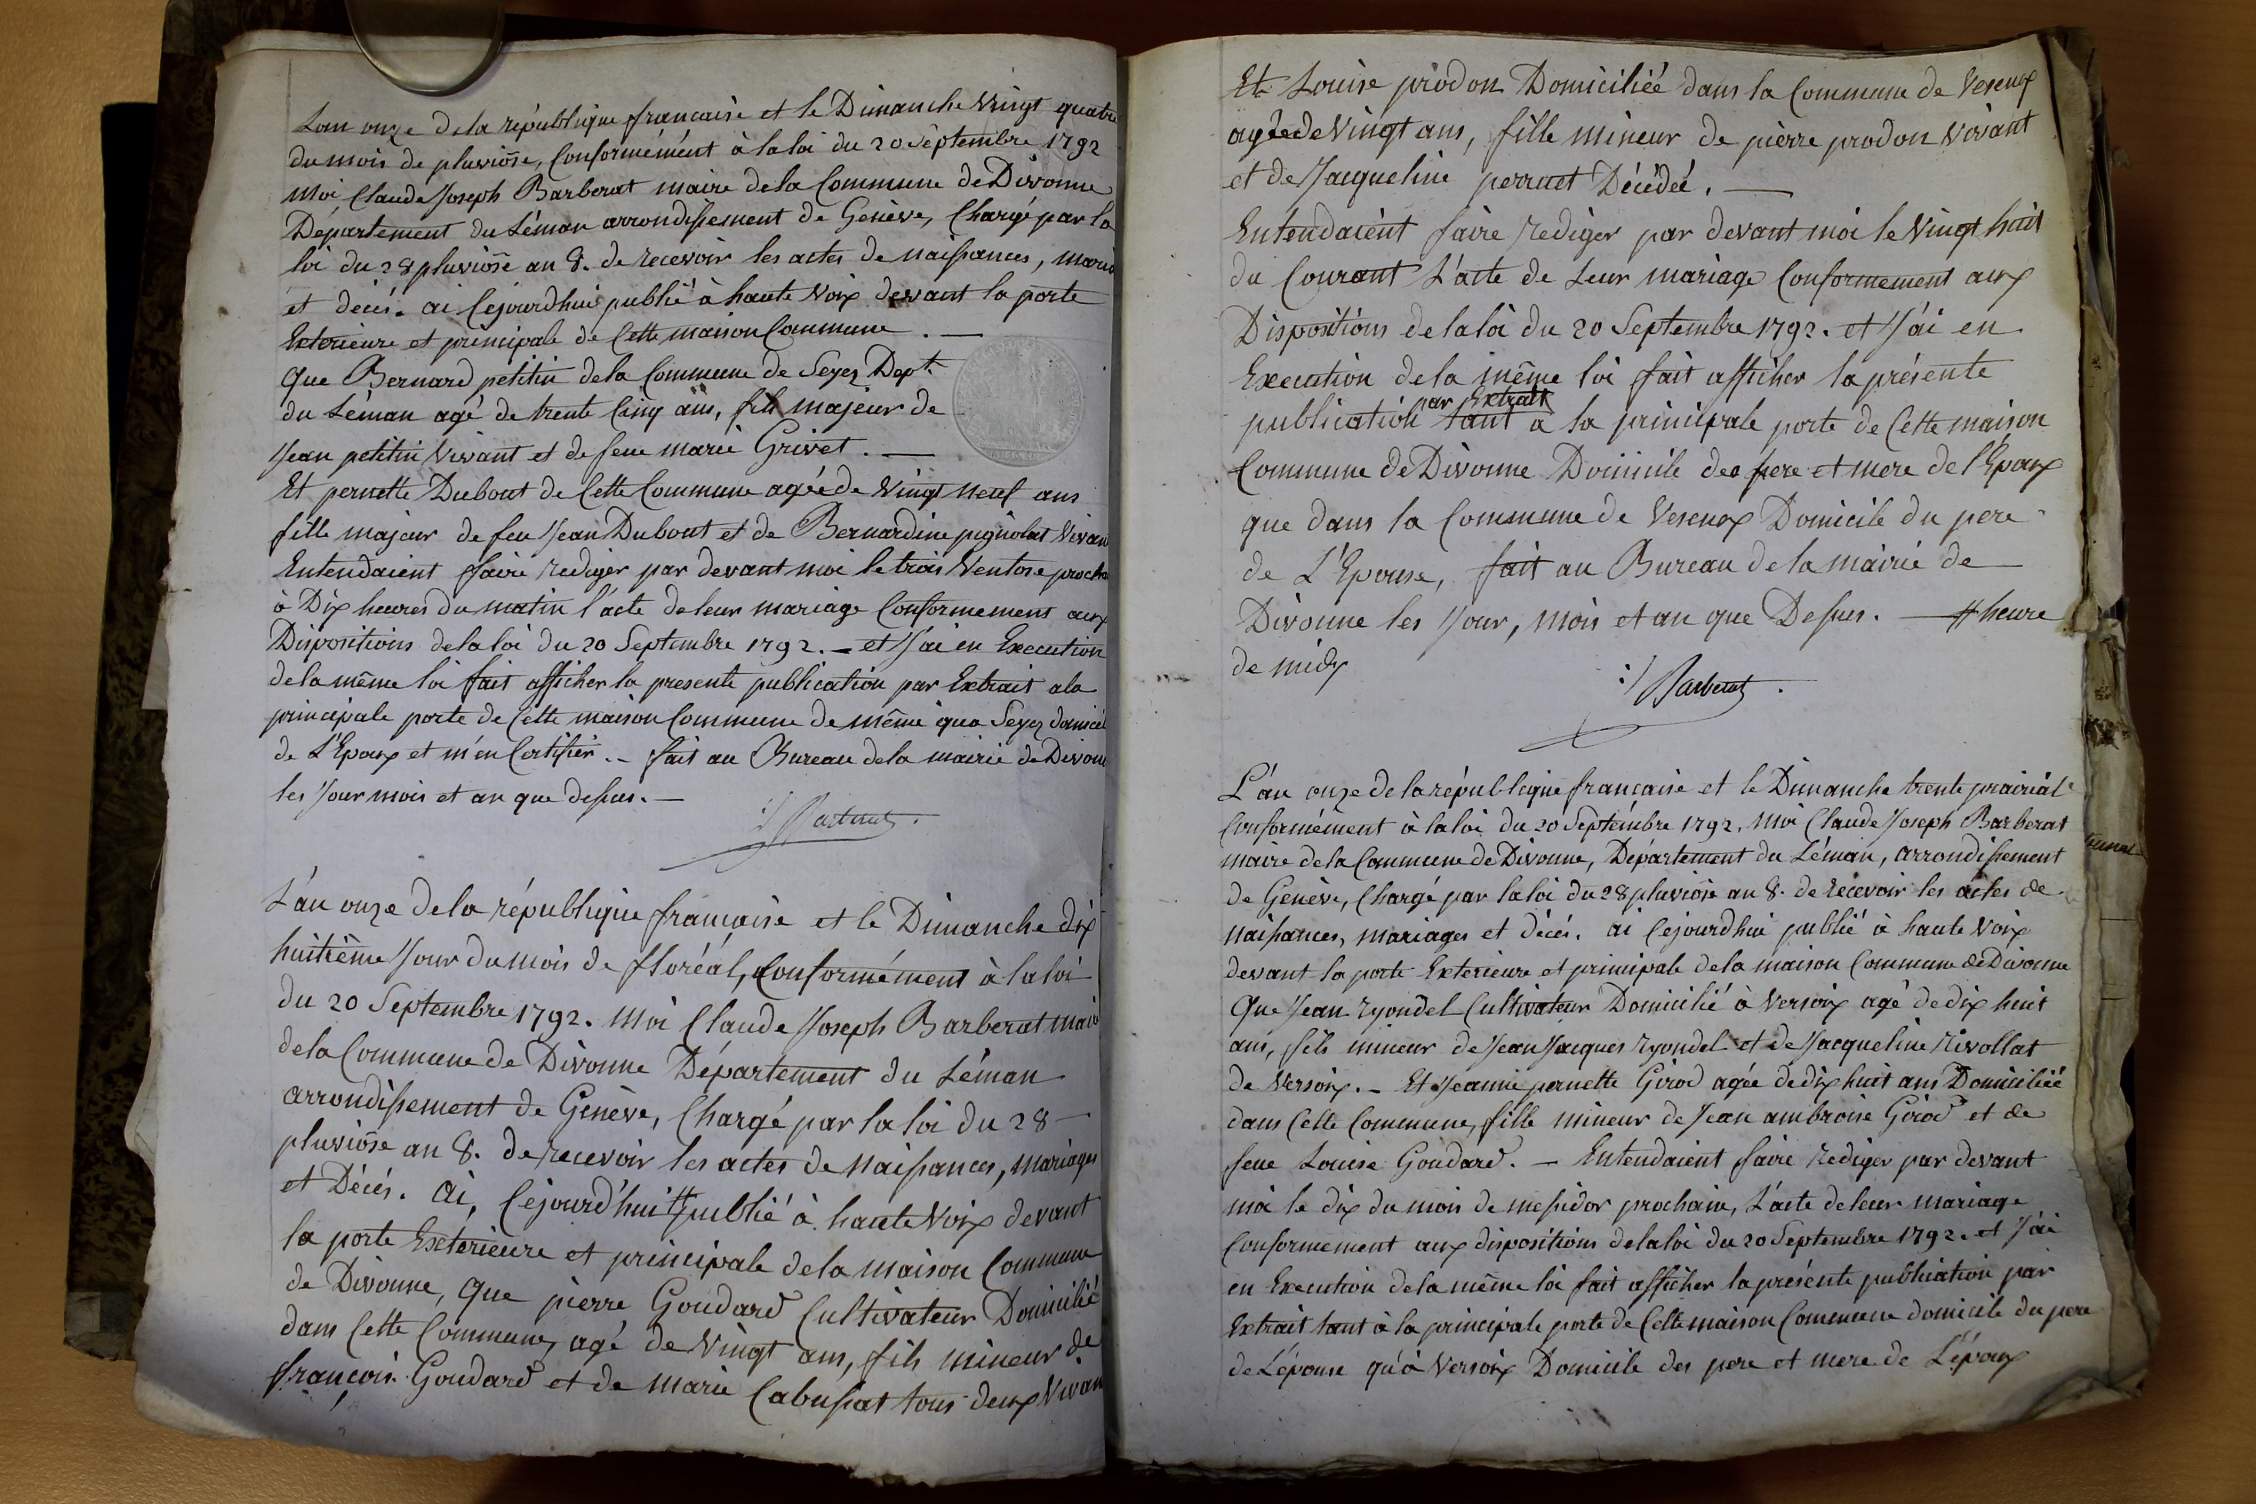 Lan onze de la république francaise et le Dimanche Vingt quatre
du mois de pluviôse, Conformément à la loi du 20 Septembre 1792
Moi Claude Joseph Barberat maire de la Commune de Divonne
Département du Léman arrondissement de Genève, Chargé par la
loi du 28 pluviôse an 8. de recevoir les actes de naissances, maria
et décés. ai Cejourdhui publié à haute Voix devant la porte
Exterieure et principale de Cette maison Commune.
Que Bernard petitin de la Commune de Seyez Dept.
du Léman agé de trente Cinq ans, fils majeur de
Jean petitin Vivant et de feue marie Grivet.
Et pernette Dubout de Cette Commune agée de Vingt neuf ans
fille majeur de feu Jean Dubout et de Bernardine pignolat Vivan
Entendaient faire rediger par devant moi le trois Ventose procha
à Dix heures du matin l'acte de leur mariage Conformement aux
Dispositions de la loi du 20 Septembre 1792. - et J'ai en Execution
de la même loi fait afficher la presente publication par Extrait a la
principale porte de Cette maison Commune de même qua Seyez domicil
de L'Epoux et m'en Certifier. - fait au Bureau de la mairie de Divonn
les Jour mois et an que dessus. -
Barberat
L'an onze de la république francaise et le Dimanche dix
huitième Jour du mois de floréal, Conformément à la loi
du 20 Septembre 1792. Moi Claude Joseph Barberat maire
de la Commune de Divonne Département du Léman
arrondissement de Genève, Chargé par la loi du 28
pluviôse an 8. de recevoir les actes de naissances, mariages
et Décés. ai, Cejourd'hui # publié à haute Voix devant
la porte Exterieure et principale de la maison Commune
de Divonne, Que pierre Goudard Cultivateur Domicilié
dans Cette Commune, agé de Vingt ans, fils mineur de
françois Goudard et de marie Cabussat tous deux Vivan
Et Louise prodon Domiciliée dans la Commune de Vesenex
agée de Vingt ans, fille mineur de pierre prodon Vivant
et de Jacqueline perruet Décédée.
Entendaient faire rediger par devant moi le Vingt huit
du Courant L'acte de Leur mariage Conformement aux
Dispositions de la loi du 20 Septembre 1792. et J'ai en
Execution de la même loi fait afficher la présente
par Extrait
publication tant a la principale porte de Cette maison
Commune de Divonne Domicile des pere et mere de l'Epoux
que dans la Commune de Vesenex Domicile du pere
de L'Epouse, fait au Bureau de la mairie de
Divonne les Jour, mois et an que Dessus. - # heure
de midy
Barberat
L'an onze de la république francaise et le Dimanche trente prairial
Conformément à la loi du 20 Septembre 1792. Moi Claude Joseph Barberat
maire de la Commune de Divonne, Département du Léman, arrondissement
de Genève, Chargé par la loi du 28 pluviôse an 8. de recevoir les actes de
naissances, mariages et décés. ai Cejourdhui publié à haute Voix
devant la porte Exterieure et principale de la maison Commune de Divonne
Que Jean ryondel Cultivateur Domicilié à Versoix agé de dix huit
ans, fils mineur de Jean Jacques ryondel et de Jacqueline rivollat
de Versoix. - Et Jeanne pernette Girod agée de dix huit ans Domiciliée
dans Cette Commune, fille mineur de Jean ambroise Girod et de
feue Louise Goudard. - Entendaient faire rediger par devant
moi le dix du mois de messidor prochain, L'acte de leur mariage
Conformement aux dispositions de la loi du 20 Septembre 1792. et J'ai
en Execution de la même loi fait afficher la présente publication par
Extrait tant à la principale porte de Cette maison Commune domicile du pere
de L'épouse qu'à Versoix Domicile des pere et mere de L'époux